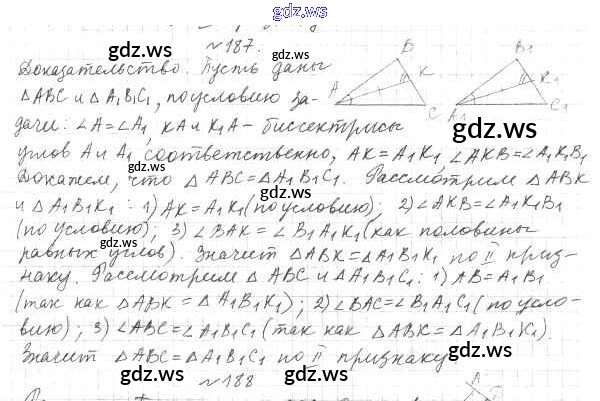 gdz.ws
№ 187.
Доказательство. Пусть даны
△ABC и △A₁B₁C₁, по условию за-
дачи: ∠A=∠A₁, KA и K₁A - биссектрисы
углов A и A₁ соответственно, AK=A₁K₁, ∠AKB=∠A₁K₁B₁
Докажем, что △ABC=△A₁B₁C₁. Рассмотрим △ABK
и △A₁B₁K₁: 1) AK=A₁K₁ (по условию); 2) ∠AKB=∠A₁K₁B₁
(по условию); 3) ∠BAK=∠B₁A₁K₁ (как половины
равных углов). Значит △ABK=△A₁B₁K₁ по II приз-
наку. Рассмотрим △ABC и △A₁B₁C₁: 1) AB=A₁B₁
(так как △ABK=△A₁B₁K₁); 2) ∠BAC=∠B₁A₁C₁ (по усло-
вию); 3) ∠ABC=∠A₁B₁C₁ (так как △ABK=△A₁B₁K₁).
Значит △ABC=△A₁B₁C₁ по II признаку
№ 188
A B C K
A₁ B₁ C₁ K₁
A
gdz.ws
gdz.ws
gdz.ws
gdz.ws
gdz.ws
gdz.ws
gdz.ws
gdz.ws